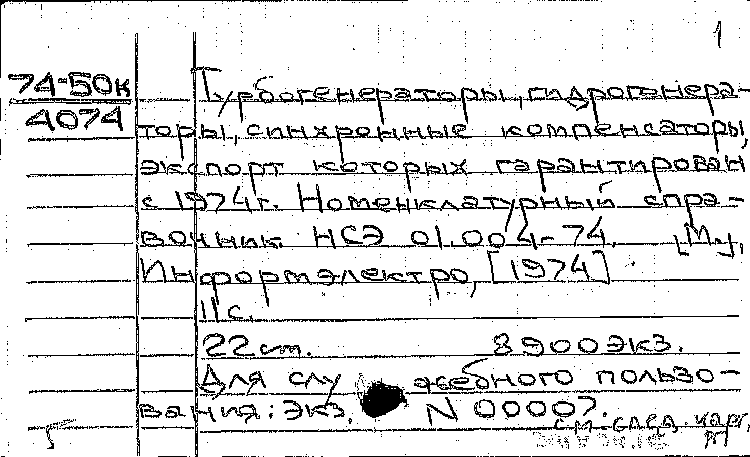 1
74-50к
4074
Турбогенераторы, гидрогенера-
торы, синхронные компенсаторы,
экспорт которых гарантирован
с 1974г. Номенклатурный спра-
вочник НСЭ 01.004-74. [М.,
Информэлектро, [1974]
11 с.
22 см. 8900экз.
Для служебного пользо-
вания: экз. N 00007.
см. след. карт.